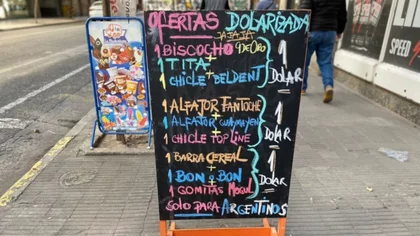 OFERTAS DOLARIZADA
JAJAJA
1 BISCOCHO DE ORO
+
1 TITA
+
1 CHICLE BELDENT
1 DOLAR
1 ALFAJOR FANTOCHE
+
1 ALFAJOR GUAYMALLEN
+
1 CHICLE TOP LINE
1 DOLAR
1 BARRA CEREAL
+
1 BON O BON
+
1 GOMITAS MOGUL
1 DOLAR
SOLO PARA ARGENTINOS
SPEED